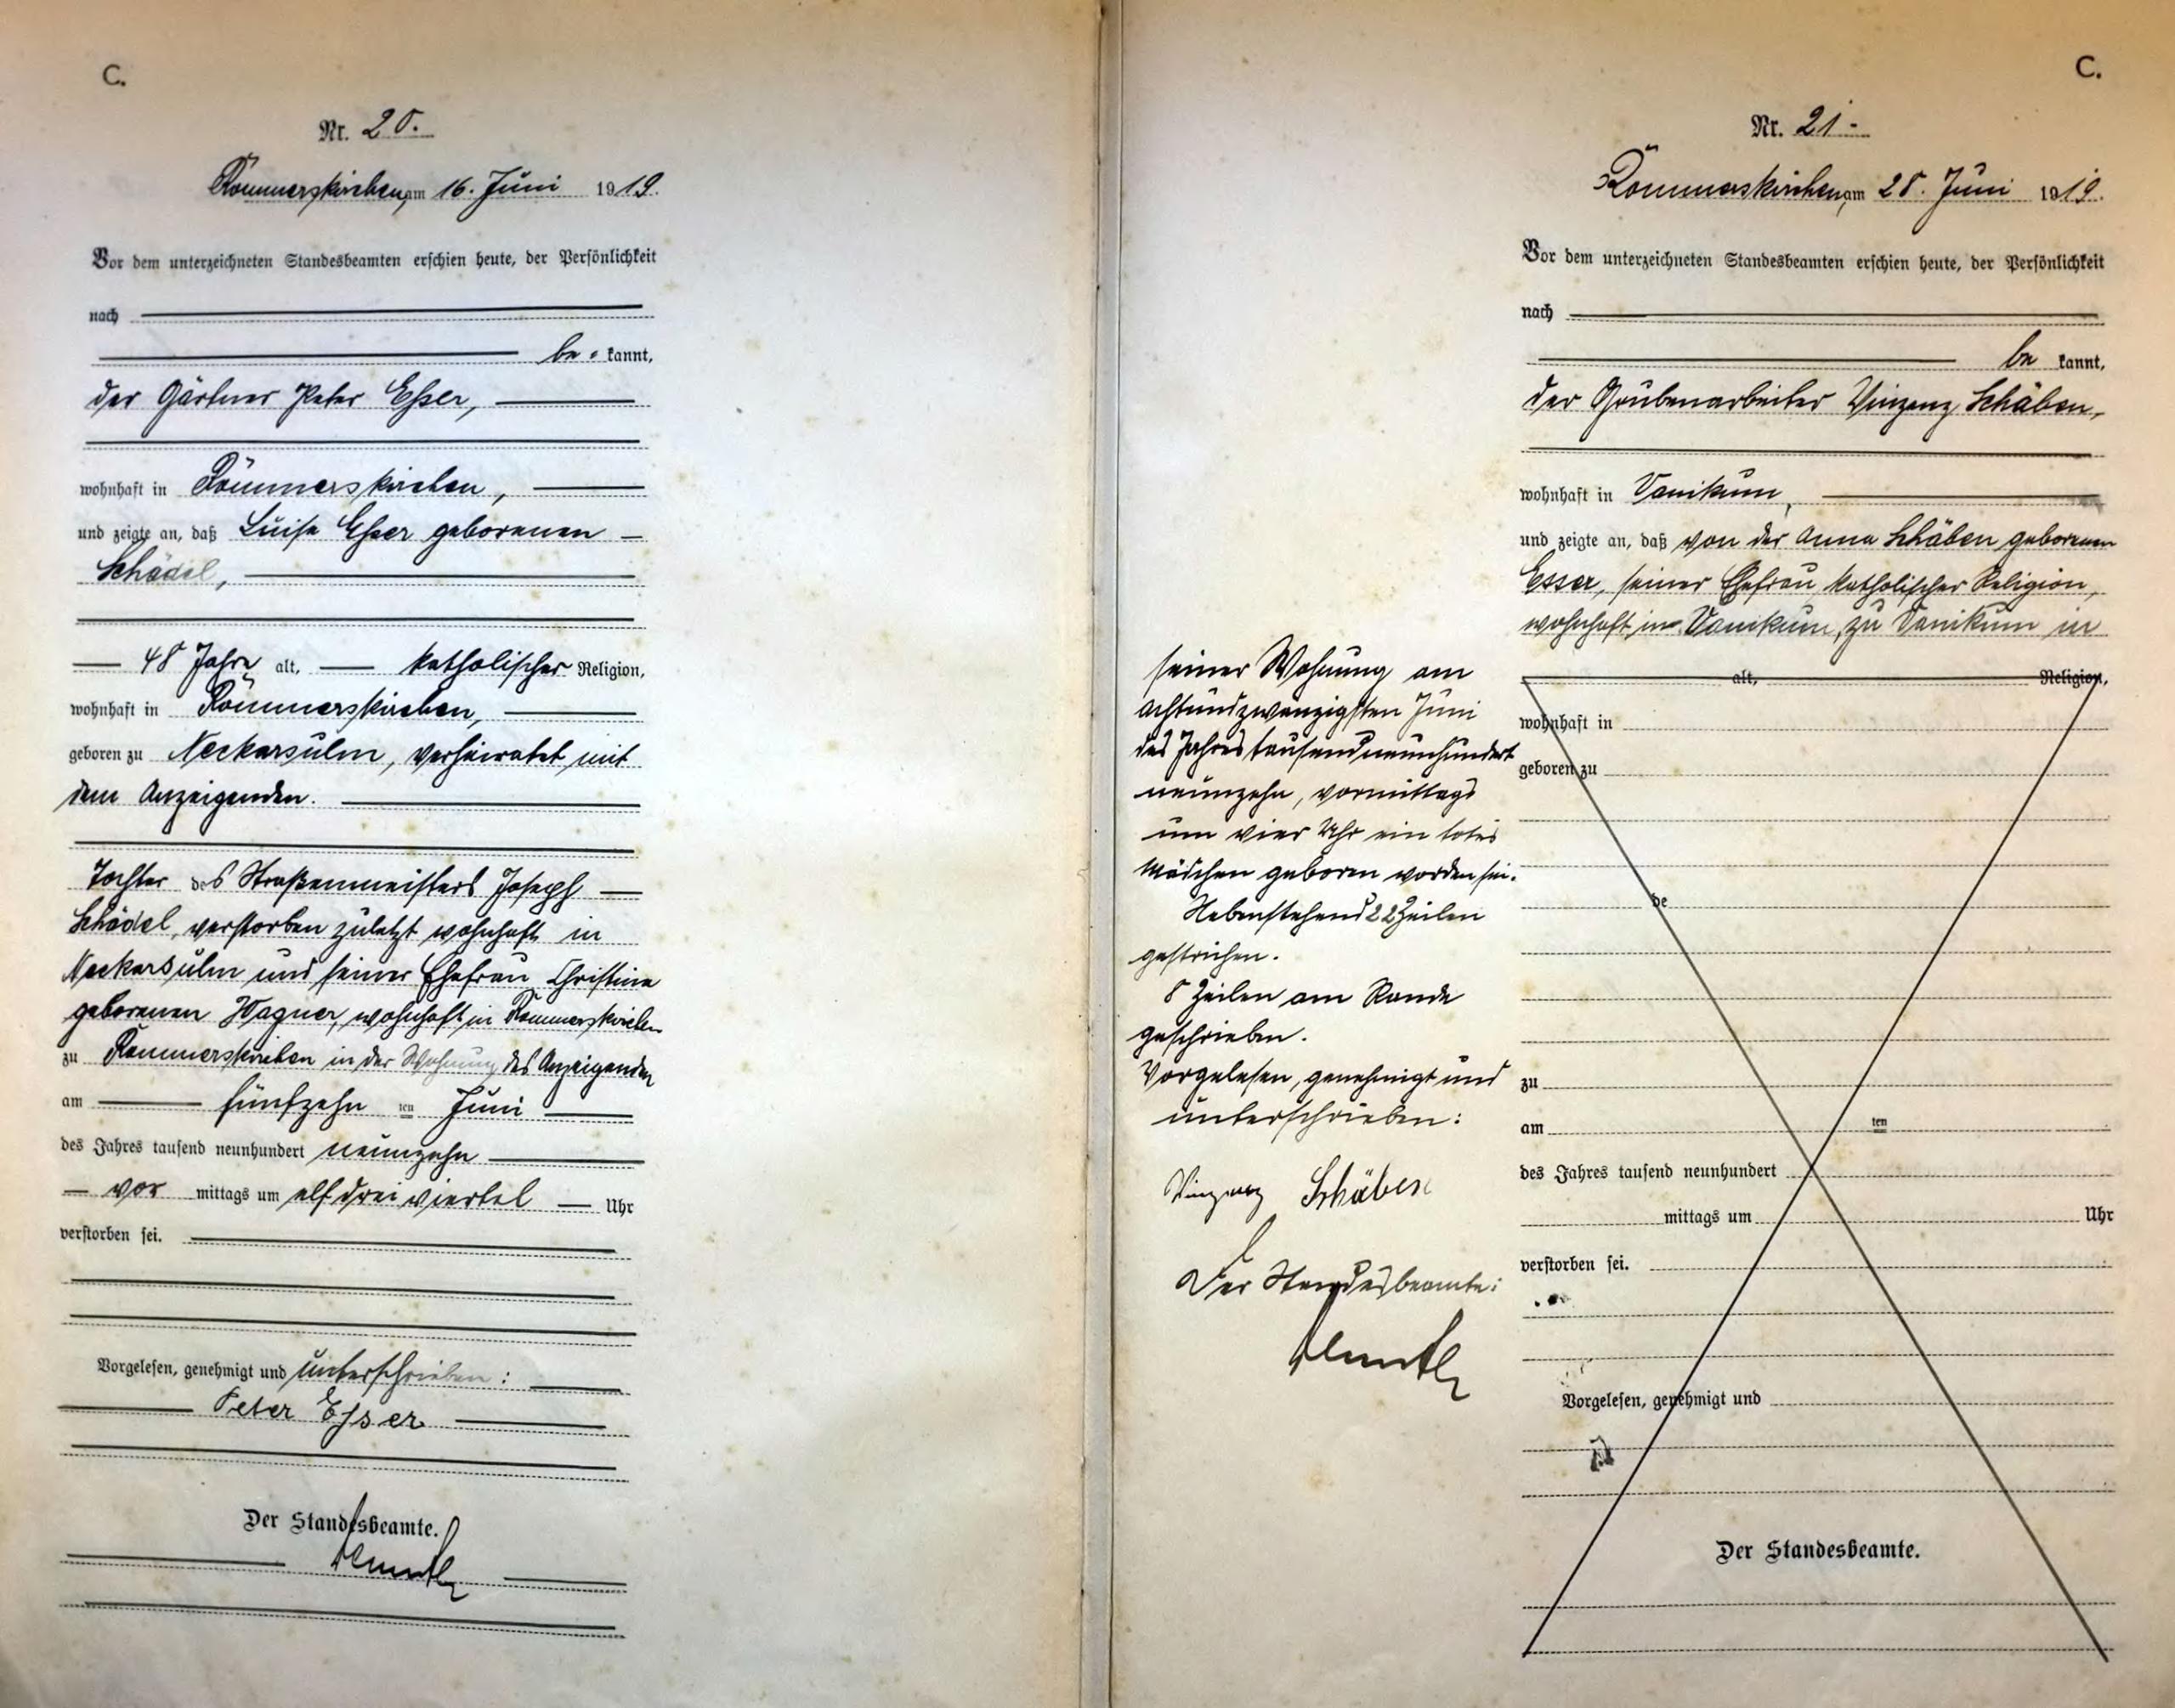 C.
Nr. 20.
Rommerskirchen, am 16. Juni 1919.
Vor dem unterzeichneten Standesbeamten erschien heute, der Persönlichkeit
nach
be kannt,
der Gärtner Peter Esser,
wohnhaft in Rommerskirchen,
und zeigte an, daß Luise Esser geborenen
Schädel,
48 Jahre alt, katholischer Religion,
wohnhaft in Rommerskirchen,
geboren zu Neckarsulm, verheiratet mit
dem Anzeigenden.
Tochter des Straßenmeisters Joseph
Schädel, verstorben zuletzt wohnhaft in
Neckarsulm und seiner Ehefrau Christine
geborenen Wagner, wohnhaft in Rommerskirchen
zu Rommerskirchen in der Wohnung des Anzeigenden
am fünfzehn ten Juni
des Jahres tausend neunhundert neunzehn
vor mittags um elf drei viertel Uhr
verstorben sei.
Vorgelesen, genehmigt und unterschrieben:
Peter Esser
Der Standesbeamte.
C.
Nr. 21.
Rommerskirchen, am 28. Juni 1919.
Vor dem unterzeichneten Standesbeamten erschien heute, der Persönlichkeit
nach
be kannt,
der Grubenarbeiter Vinzenz Schäben,
wohnhaft in Vanikum,
und zeigte an, daß von der Anna Schäben geborenen
Esser, seiner Ehefrau, katholischer Religion,
wohnhaft in Vanikum, zu Vanikum in
seiner Wohnung am
achtundzwanzigsten Juni
des Jahres tausendneunhundert
neunzehn, vormittags
um vier Uhr ein totes
Mädchen geboren worden sei.
Nebenstehend 22 Zeilen
gestrichen.
8 Zeilen am Rande
geschrieben.
Vorgelesen, genehmigt und
unterschrieben:
Vinzenz Schäben
Der Standesbeamte:
alt, Religion,
wohnhaft in
geboren zu
de
zu
am ten
des Jahres tausend neunhundert
mittags um Uhr
verstorben sei.
Vorgelesen, genehmigt und
Der Standesbeamte.